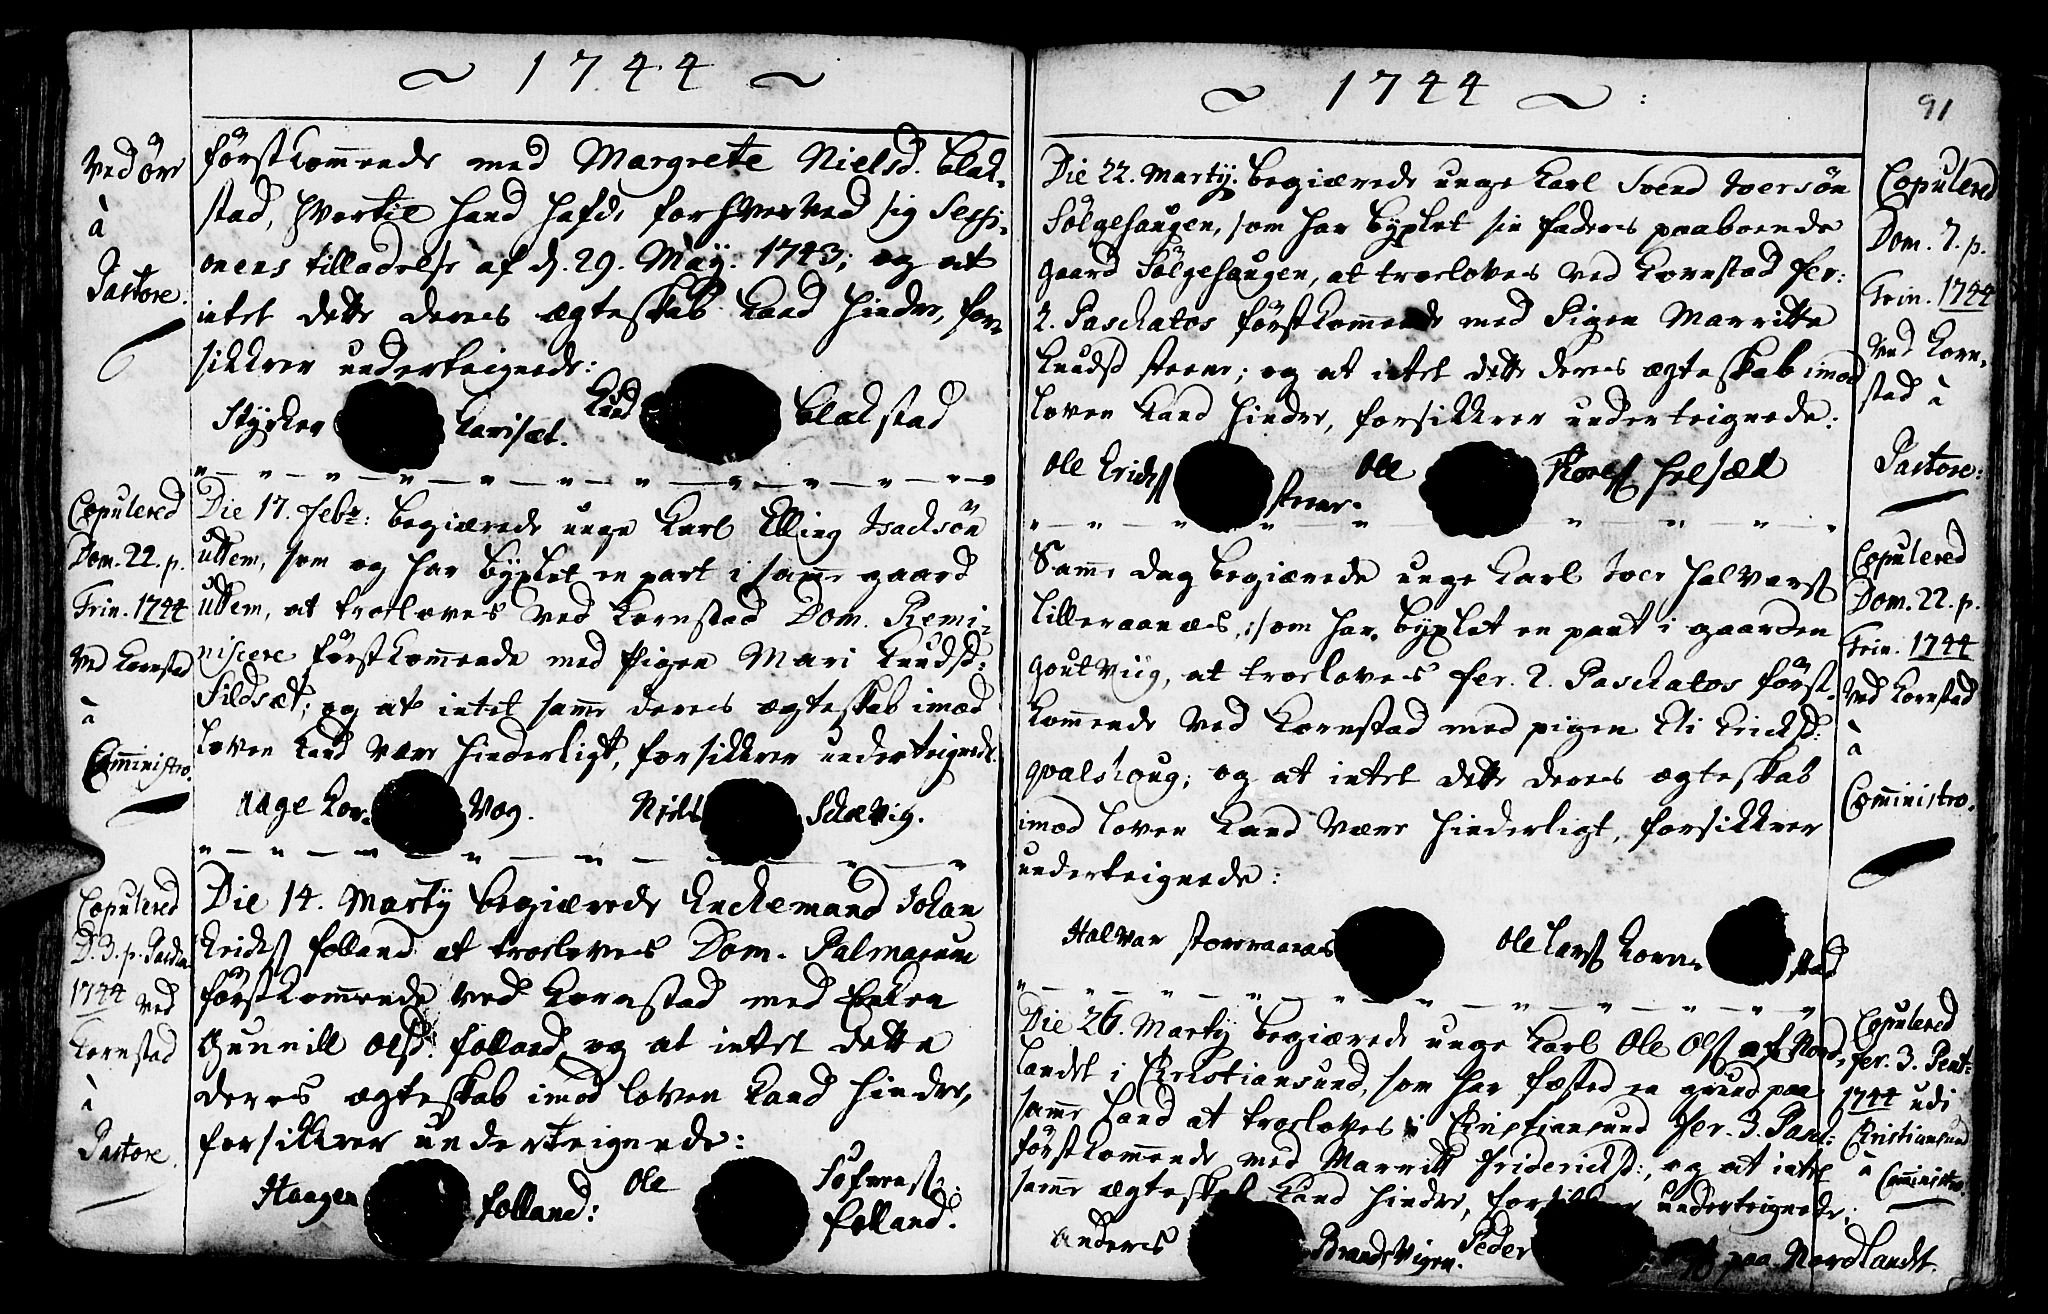 ~ 1744 ~
Ved Öre
à
Pastore.
förstkommende med Margrete Nielsd. Blak-
stad, hvortil hand hafde forhverved sig Sessi-
onens tilladelse af d. 29. Maÿ. 1743; og at
intet dette deres ægteskab kand hindre, for-
sikkrer underteignede:
Stÿrker Karisæt. Knud Blakstad
Copulered
Dom. 22. p.
Trin. 1744
Ved Kornstad
à
Comministro.
Die 17. Febr: begiærede unge Karl Elling Isachsön
Uttem, som og har bÿxlet en part i samme gaard
Uttem, at troeloves ved Kornstad Dom. Remi-
niscere förstkommende med Pigen Mari Knudsd:
Sildsæt; og at intet samme deres ægteskab imod
loven kand være hinderligt, forsikkrer underteignede.
Aage Kor- Vog. Niels Schævig.
Copulered
D. 3. p. Pascha
1744 ved
Kornstad
à
Pastore.
Die 14. Martÿ begiærede Enckemand Johan
Ericks folland at troeloves Dom. Palmarum
förstkommende ved Kornstad med Enken
Gunnill Olsd. folland, og at intet dette
deres ægteskab imod loven kand hindre,
forsikkrer underteignede:
Haagen folland: Ole Söfrens:
folland.
~ 1744 ~ :
91
Die 22. Martÿ. begiærede unge Karl Svend Iversön
Sölgehaugen, som har bÿxlet sin faders paaboende
gaard Sölgehaugen, at troeloves ved Kornstad fer:
2. Paschatos förstkommende med Pigen Marritte
Knudsd steene; og at intet dette deres ægteskab imod
loven kand hindre, forsikkrer underteignede:
Ole Ericks steene. Ole Helsæt
Copulered
Dom. 7. p.
Trin. 1744
Ved Korn-
stad à
Pastore:
Samme dag begiærede unge Karl Iver Halvors
Lilleraanæs, som har bÿxlet en part i gaarden
Goutviig, at troeloves fer. 2. Paschatos först-
kommende ved Kornstad med pigen Eli Ericksd:
qvalshoug; og at intet dette deres ægteskab
imod loven kand være hinderligt, forsikkrer
underteignede:
Halvor storeraanas Ole Lars Korn- stad
Copulered
Dom. 22. p.
Trin. 1744
Ved Kornstad
à
Comministro.
Die 26. Martÿ begiærede unge Karl Ole Ols af Nord-
landet i Christiansund, som har fæsted en grund paa
samme land at troeloves i Christiansund fer. 3. Pasch:
förstkommende med Marritt Fridericksd:, og at intet
samme ægteskab kand hindre, forsikkrer underteignede:
Anders Brandsvigen. Peder paa Nordlandt.
Copulered
fer. 3. Pent:
1744 udi
Christiansund
à
Comministro.